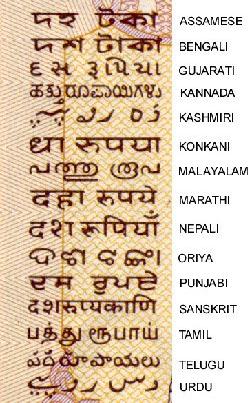 দহ টকা ASSAMESE
দশ টাকা BENGALI
દસ રૂપિયા GUJARATI
ಹತ್ತು ರೂಪಾಯಿಗಳು KANNADA
KASHMIRI
धा रुपया KONKANI
പത്തു രൂപ MALAYALAM
दहा रुपये MARATHI
दश रुपियाँ NEPALI
ଦଶ ଟଙ୍କା ORIYA
ਦਸ ਰੁਪਏ PUNJABI
दशरूप्यकाणि SANSKRIT
பத்து ரூபாய் TAMIL
పది రూపాయలు TELUGU
URDU